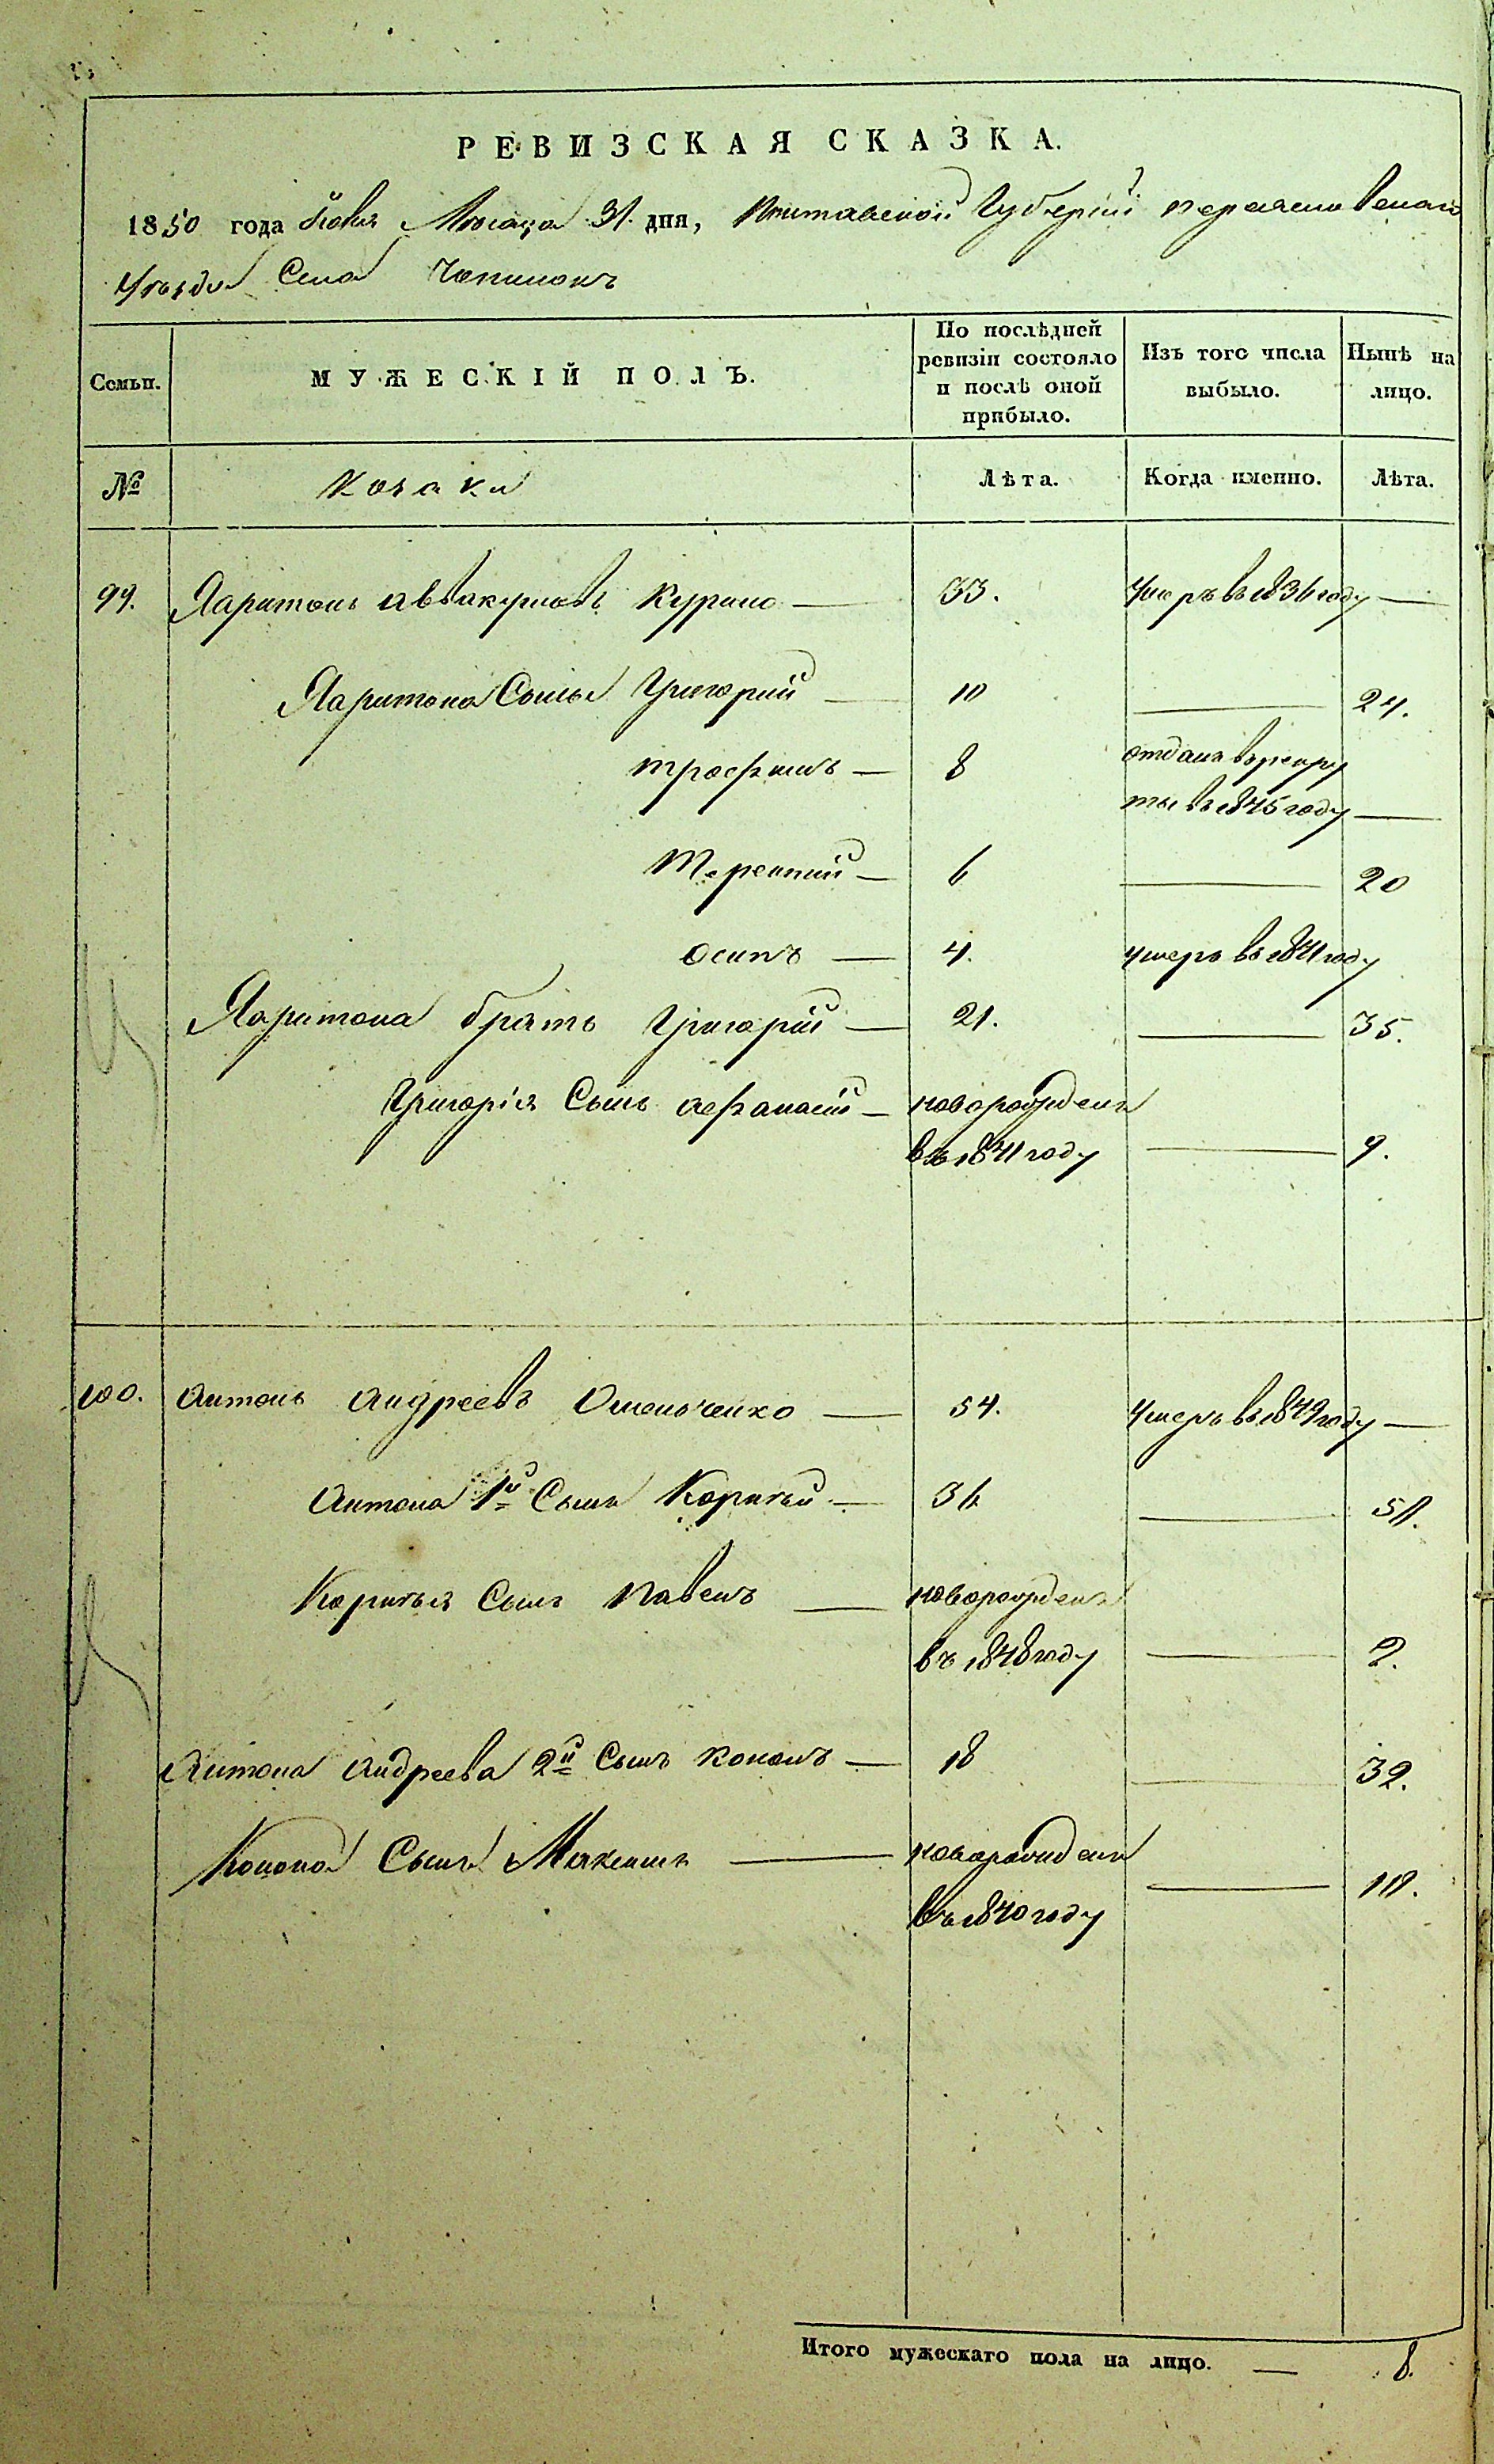 РЕВИЗСКАЯ СКАЗКА.
1850 года Мѣсяца 31. дня, Полтавской Губерніи переяславскаго
Уѣзда Села Чопилокъ
Семьи.
МУЖЕСКІЙ ПОЛЪ.
По послѣдней ревизіи состояло и послѣ оной прибыло.
Изъ того числа выбыло.
Нынѣ на лицо.
№
Козаки
Лѣта.
Когда именно.
Лѣта.
99. Харитонъ аввакумовъ Курило — 33. Умеръ въ 1836 году —
Харитона Сынья Григорий — 10 — 24.
трофимъ — 8 отданъ врекру
ты въ 1845 году —
Терентий — 6 — 20
осипъ — 4. умеръ въ 1841 году
Харитона братъ Григорій — 21. — 35.
Григорія Сынъ афанасій — новорожденъ
въ 1841 году — 9.
100. Антонъ Андреевъ Омельченко — 54. Умеръ въ 1849 году —
Антона 1й Сынъ Корнѣй — 36 — 50.
Корнѣя Сынъ Павелъ — новорожденъ
въ 1848 году — 2.
Антона Андреева 2й Сынъ кононъ — 18 — 32.
Конона Сынъ Максимъ — новорожденъ
въ 1840 году — 10.
Итого мужескаго пола на лицо. — 8.